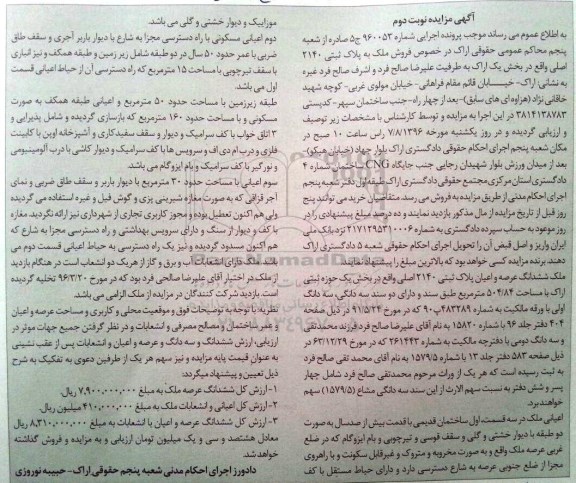 آگهی مزایده نوبت دوم
به اطلاع عموم می رساند موجب پرونده اجرایی شماره ۹۶۰۰۵۲ ج۵ صادره از شعبه
پنجم محاکم عمومی حقوقی اراک در خصوص فروش ملک به پلاک ثبتی ۲۱۴۰
اصلی واقع در بخش یک اراک به ظرفیت علیرضا صالح فرد و اشرف صالح فرد غیره
به نشانی: اراک- خیابان قائم مقام فراهانی- خیابان مولوی غربی- کوچه شهید
خاقانی نژاد (هزاوه ای های سابق)- بعد از چهار راه- جنب ساختمان سپهر- کدپستی
۳۸۱۴۱۳۸۷۸۳ در این اجرا به مزایده و توسط کارشناس با مشخصات زیر توصیف
و ارزیابی گردیده و در روز یکشنبه مورخه ۷/۸/۱۳۹۶ راس ساعت ۱۰ صبح در
مکان شعبه پنجم اجرای احکام حقوقی دادگستری اراک بلوار جهاد (خیابان هپکو)-
بعد از میدان ورزش بلوار شهیدان رجایی جنب جایگاه CNG ساختمان شماره ۴
دادگستری استان مرکزی مجتمع حقوقی دادگستری اراک طبقه اول دفتر شعبه پنجم
اجرای احکام مدنی از طریق مزایده به فروش می رسد. متقاضیان خرید می توانند پنج
روز قبل از تاریخ مزایده از مال مذکور بازدید نمایند و ده درصد مبلغ پیشنهادی را در
روز موعود به حساب سپرده دادگستری به شماره ۲۱۷۱۲۹۵۳۱۰۰۰۶ نزد بانک ملی
ایران واریز و اصل فیش آن را تحویل اجرای احکام حقوقی شعبه ۵ دادگستری اراک
دهند. برنده مزایده کسی خواهد بود که بالاترین مبلغ را پیشنهاد نماید.
ملک ششدانگ عرصه و اعیان پلاک ثبتی ۲۱۴۰ اصلی واقع در بخش یک حوزه ثبتی
اراک با مساحت ۵۰۴/۸۴ مترمربع طبق سند و دارای دو سند سه دانگی، سه دانگ
اولی با ورقه مالکیت به شماره ۴۸۳۲۸۹ب۹۰ که در مورخ ۹۱/۵/۲۴ در ذیل صفحه
۴۰۴ دفتر جلد ۹۶ با شماره ۱۵۸۲۰ به نام آقای علیرضا صالح فرد فرزند محمدتقی
و سه دانگ دومی با دفترچه مالکیت به شماره ۲۶۱۴۴۳ که در مورخ ۶۳/۱۲/۲۹ در
ذیل صفحه ۵۸۳ دفتر جلد ۱۳ با شماره ۱۵۷۹/۵ به نام آقای محمد تقی صالح فرد
به ثبت رسیده است که هر یک از وراث مرحوم محمدتقی صالح فرد شامل چهار
پسر و شش دفتر به نسبت سهم الارث از این سند سه دانگی مشاع (۱۵۷۹/۵) سهم
خواهند برد.
اعیانی ملک در سه قسمت، اول ساختمان قدیمی با قدمت بیش از صد سال به صورت
دو طبقه با دیوار خشتی و گلی و سقف قوسی و تیرچوبی و بام ایزوگام که در ضلع
غربی عرصه ملک واقع و به صورت مخروبه و متروک و غیرقابل سکونت و با راهروی
مجزا از ضلع جنوبی عرصه به شارع دسترسی دارد و دارای حیاط مستقل با کف
موزاییک و دیوار خشتی و گلی می باشد.
دوم اعیانی مسکونی با راه دسترسی مجزا به شارع با دیوار باربر آجری و سقف طاق
ضربی با عمر حدود ۵۰ سال در دو طبقه شامل زیر زمین و طبقه همکف و نیز انباری
با سقف تیرچوبی با مساحت ۱۵ مترمربع که راه دسترسی آن از حیاط اعیانی قسمت
اول می باشد.
طبقه زیرزمین با مساحت حدود ۵۰ مترمربع و اعیانی طبقه همکف به صورت
مسکونی و با مساحت حدود ۱۶۰ مترمربع که بازسازی گردیده و شامل پذیرایی و
۳ اتاق خواب با کف سرامیک و دیوار و سقف سفیدکاری و آشپزخانه اوپن با کابینت
فلزی و درب ام دی اف و سرویس ها با کف سرامیک و دیوار کاشی با درب آلومینیومی
و نورگیر با کف سرامیک و بام ایزوگام می باشد.
سوم اعیانی با مساحت حدود ۳۰ مترمربع با دیوار باربر و سقف طاق ضربی و نمای
آجر قزاقی که به صورت مغازه شیرینی پزی و گوش فیل و غیره استفاده می گردیده
ولی هم اکنون تعطیل بوده و مجوز کاربری تجاری از شهرداری نیز ارائه نگردید. مغازه
با کف و دیوار از سنگ و دارای سرویس بهداشتی و راه دسترسی مجزا به شارع که
هم اکنون مسدود گردیده و نیز یک راه دسترسی به حیاط اعیانی قسمت دوم می
باشد. ملک دارای انشعابات آب و برق و گاز از هریک دو انشعاب است در هنگام بازدید
از ملک در اختیار آقای علیرضا صالحی فرد بود که در مورخ ۹۶/۳/۲۰ تخلیه گردیده
است بازدید شرکت کنندگان در مزایده از ملک الزامی می باشد.
نظریه: با توجه به توضیحات فوق و موقعیت محلی و کاربری و مساحت عرصه و اعیان
و عمر ساختمان و مصالح مصرفی و انشعابات و در نظر گرفتن جمیع جهات موثر در
ارزیابی، ارزش ششدانگ و سه دانگ و عرصه و اعیان و انشعابات پس از عقب نشینی
به عنوان قیمت پایه مزایده و نیز سهم هر یک از طرفین دعوی به تفکیک به شرح
ذیل تعیین و پیشنهاد میگردد:
۱-ارزش کل ششدانگ عرصه ملک به مبلغ ۷,۹۰۰,۰۰۰,۰۰۰ ریال.
۲-ارزش کل اعیانی و انشعابات ملک به مبلغ ۴۱۰,۰۰۰,۰۰۰ میلیون ریال.
۳- ارزش کل ششدانگ عرصه و اعیان با انشعابات به مبلغ ۸,۳۱۰,۰۰۰,۰۰۰ ریال
معادل هشتصد و سی و یک میلیون تومان ارزیابی و به مزایده و فروش گذاشته
خواهد شد.
دادورز اجرای احکام مدنی شعبه پنجم حقوقی اراک- حبیبه نوروزی